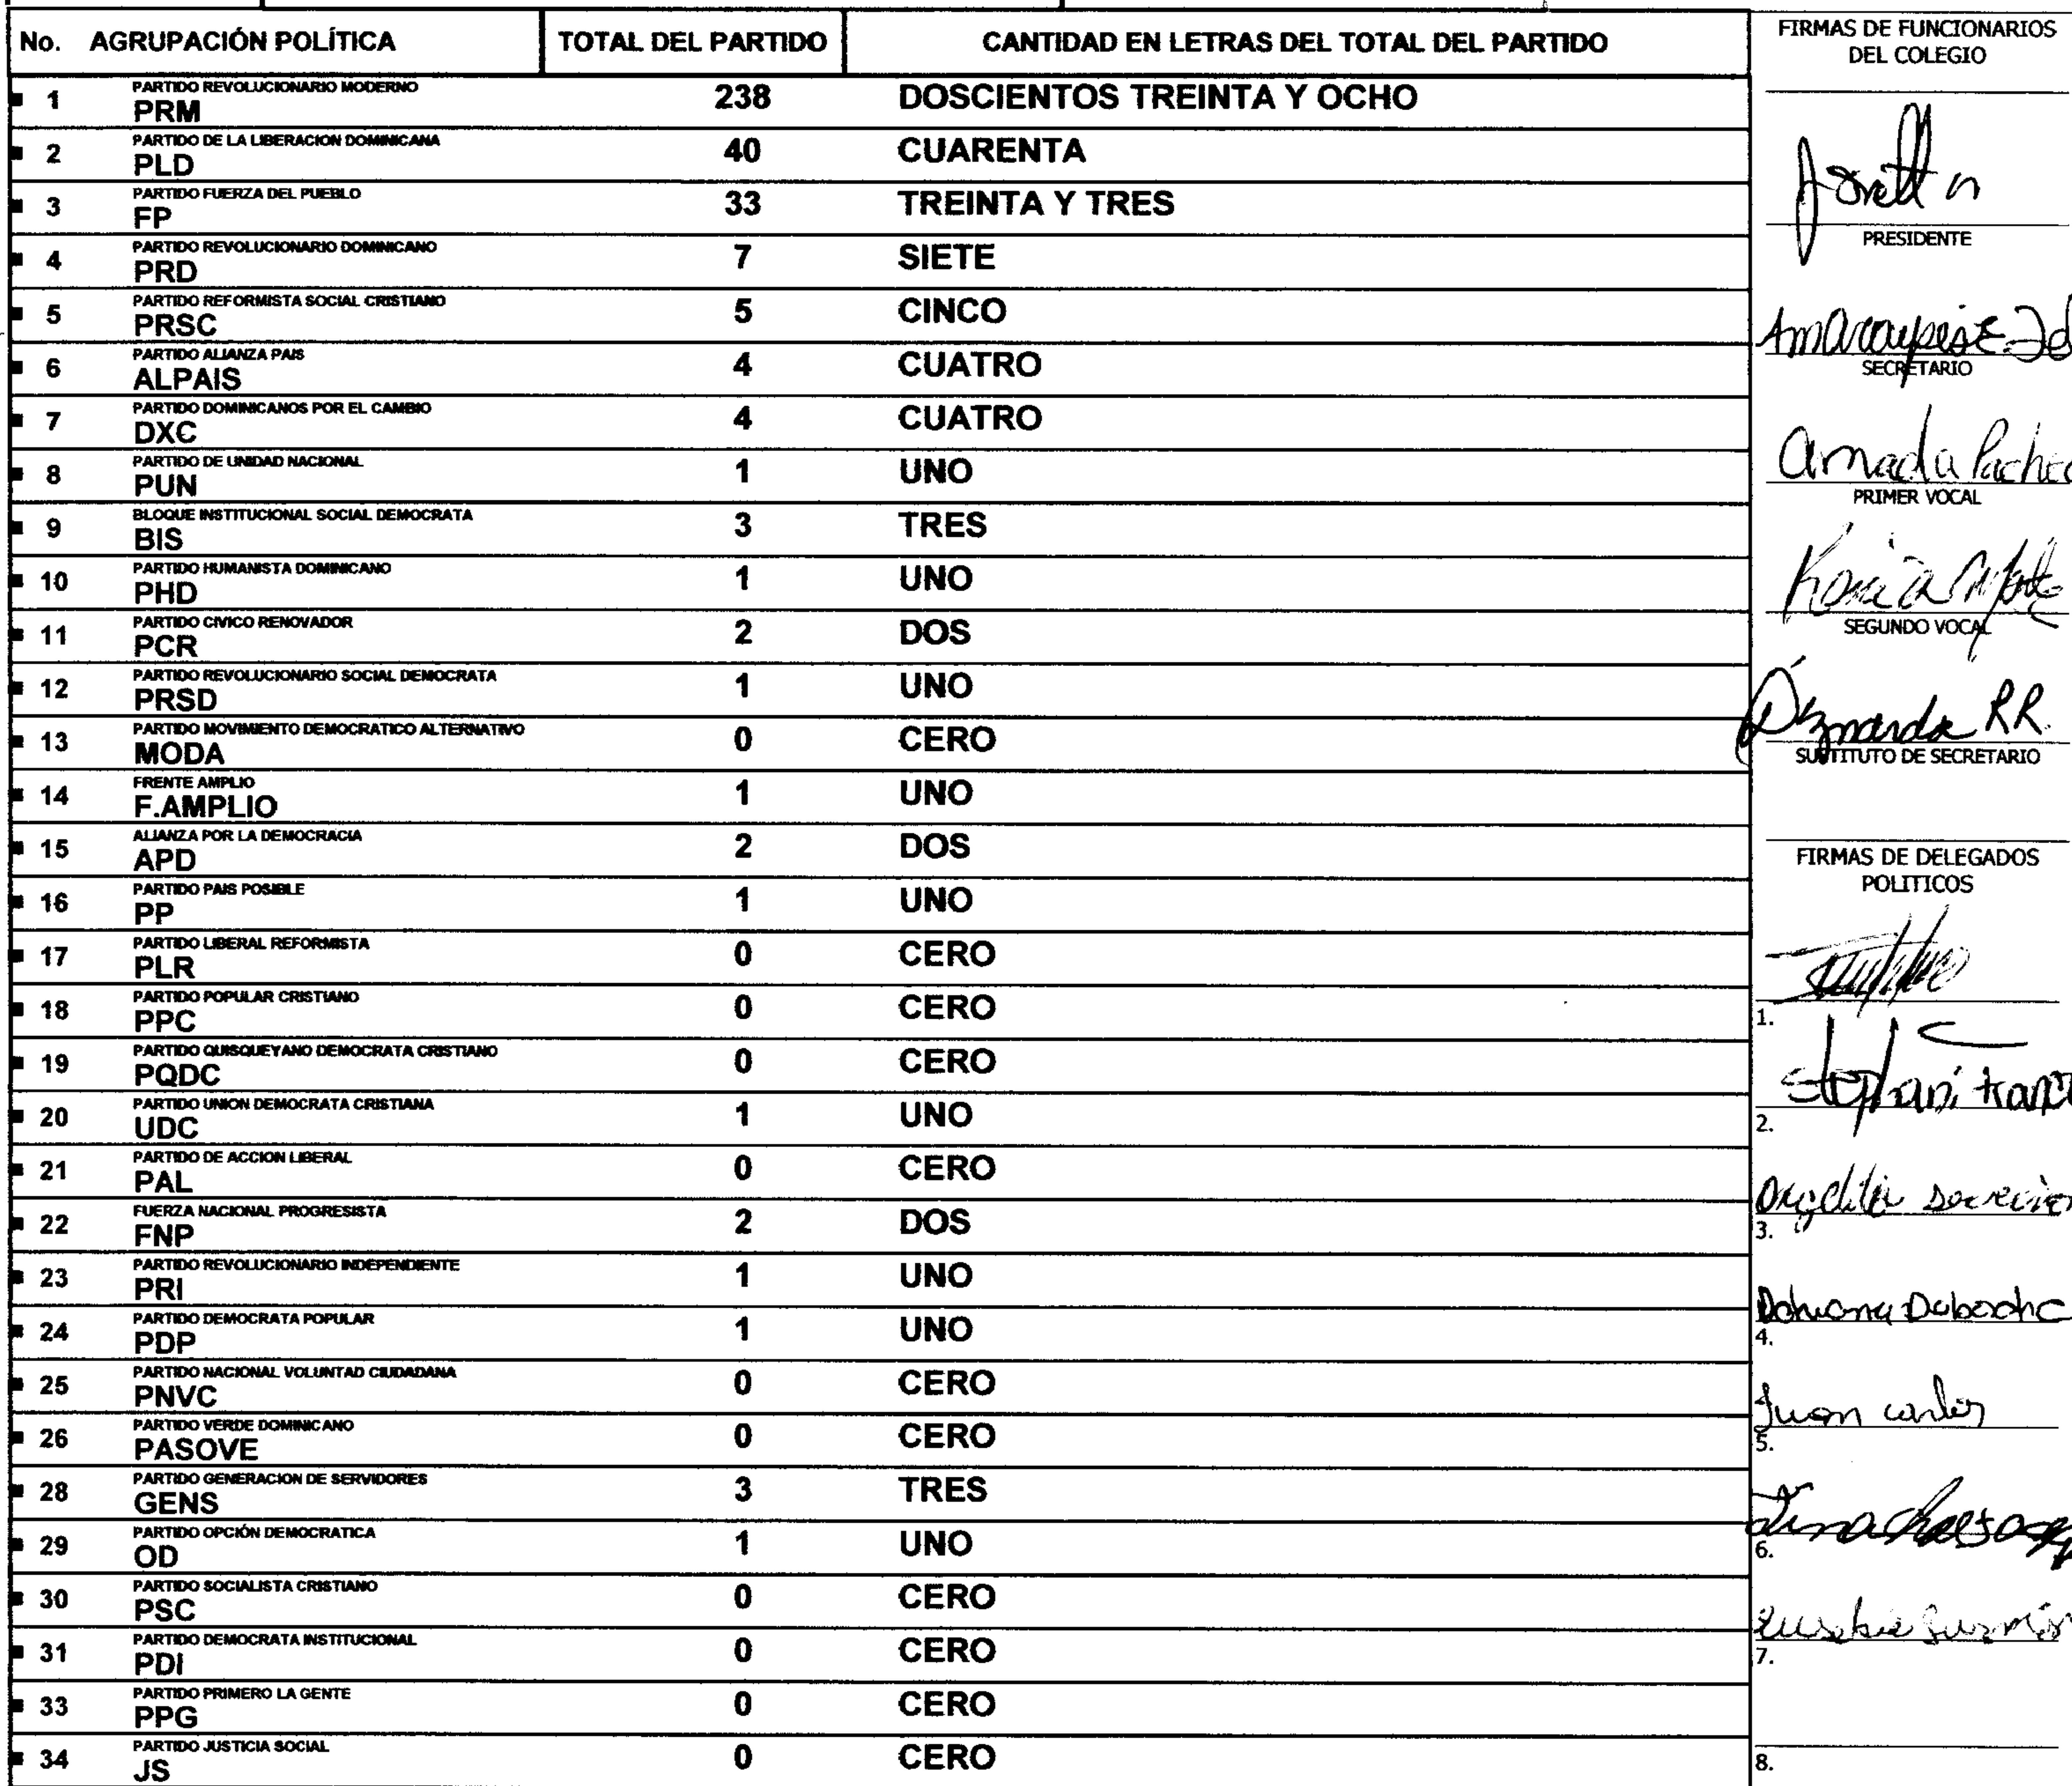 No. AGRUPACIÓN POLÍTICA TOTAL DEL PARTIDO CANTIDAD EN LETRAS DEL TOTAL DEL PARTIDO
1 PARTIDO REVOLUCIONARIO MODERNO
PRM 238 DOSCIENTOS TREINTA Y OCHO
2 PARTIDO DE LA LIBERACION DOMINICANA
PLD 40 CUARENTA
3 PARTIDO FUERZA DEL PUEBLO
FP 33 TREINTA Y TRES
4 PARTIDO REVOLUCIONARIO DOMINICANO
PRD 7 SIETE
5 PARTIDO REFORMISTA SOCIAL CRISTIANO
PRSC 5 CINCO
6 PARTIDO ALIANZA PAIS
ALPAIS 4 CUATRO
7 PARTIDO DOMINICANOS POR EL CAMBIO
DXC 4 CUATRO
8 PARTIDO DE UNIDAD NACIONAL
PUN 1 UNO
9 BLOQUE INSTITUCIONAL SOCIAL DEMOCRATA
BIS 3 TRES
10 PARTIDO HUMANISTA DOMINICANO
PHD 1 UNO
11 PARTIDO CIVICO RENOVADOR
PCR 2 DOS
12 PARTIDO REVOLUCIONARIO SOCIAL DEMOCRATA
PRSD 1 UNO
13 PARTIDO MOVIMIENTO DEMOCRATICO ALTERNATIVO
MODA 0 CERO
14 FRENTE AMPLIO
F.AMPLIO 1 UNO
15 ALIANZA POR LA DEMOCRACIA
APD 2 DOS
16 PARTIDO PAIS POSIBLE
PP 1 UNO
17 PARTIDO LIBERAL REFORMISTA
PLR 0 CERO
18 PARTIDO POPULAR CRISTIANO
PPC 0 CERO
19 PARTIDO QUISQUEYANO DEMOCRATA CRISTIANO
PQDC 0 CERO
20 PARTIDO UNION DEMOCRATA CRISTIANA
UDC 1 UNO
21 PARTIDO DE ACCION LIBERAL
PAL 0 CERO
22 FUERZA NACIONAL PROGRESISTA
FNP 2 DOS
23 PARTIDO REVOLUCIONARIO INDEPENDIENTE
PRI 1 UNO
24 PARTIDO DEMOCRATA POPULAR
PDP 1 UNO
25 PARTIDO NACIONAL VOLUNTAD CIUDADANA
PNVC 0 CERO
26 PARTIDO VERDE DOMINICANO
PASOVE 0 CERO
28 PARTIDO GENERACION DE SERVIDORES
GENS 3 TRES
29 PARTIDO OPCIÓN DEMOCRATICA
OD 1 UNO
30 PARTIDO SOCIALISTA CRISTIANO
PSC 0 CERO
31 PARTIDO DEMOCRATA INSTITUCIONAL
PDI 0 CERO
33 PARTIDO PRIMERO LA GENTE
PPG 0 CERO
34 PARTIDO JUSTICIA SOCIAL
JS 0 CERO
FIRMAS DE FUNCIONARIOS
DEL COLEGIO
PRESIDENTE
SECRETARIO
PRIMER VOCAL
SEGUNDO VOCAL
RR.
SUSTITUTO DE SECRETARIO
FIRMAS DE DELEGADOS
POLITICOS
1.
2.
3.
4.
Juan carlos
5.
6.
7.
8.